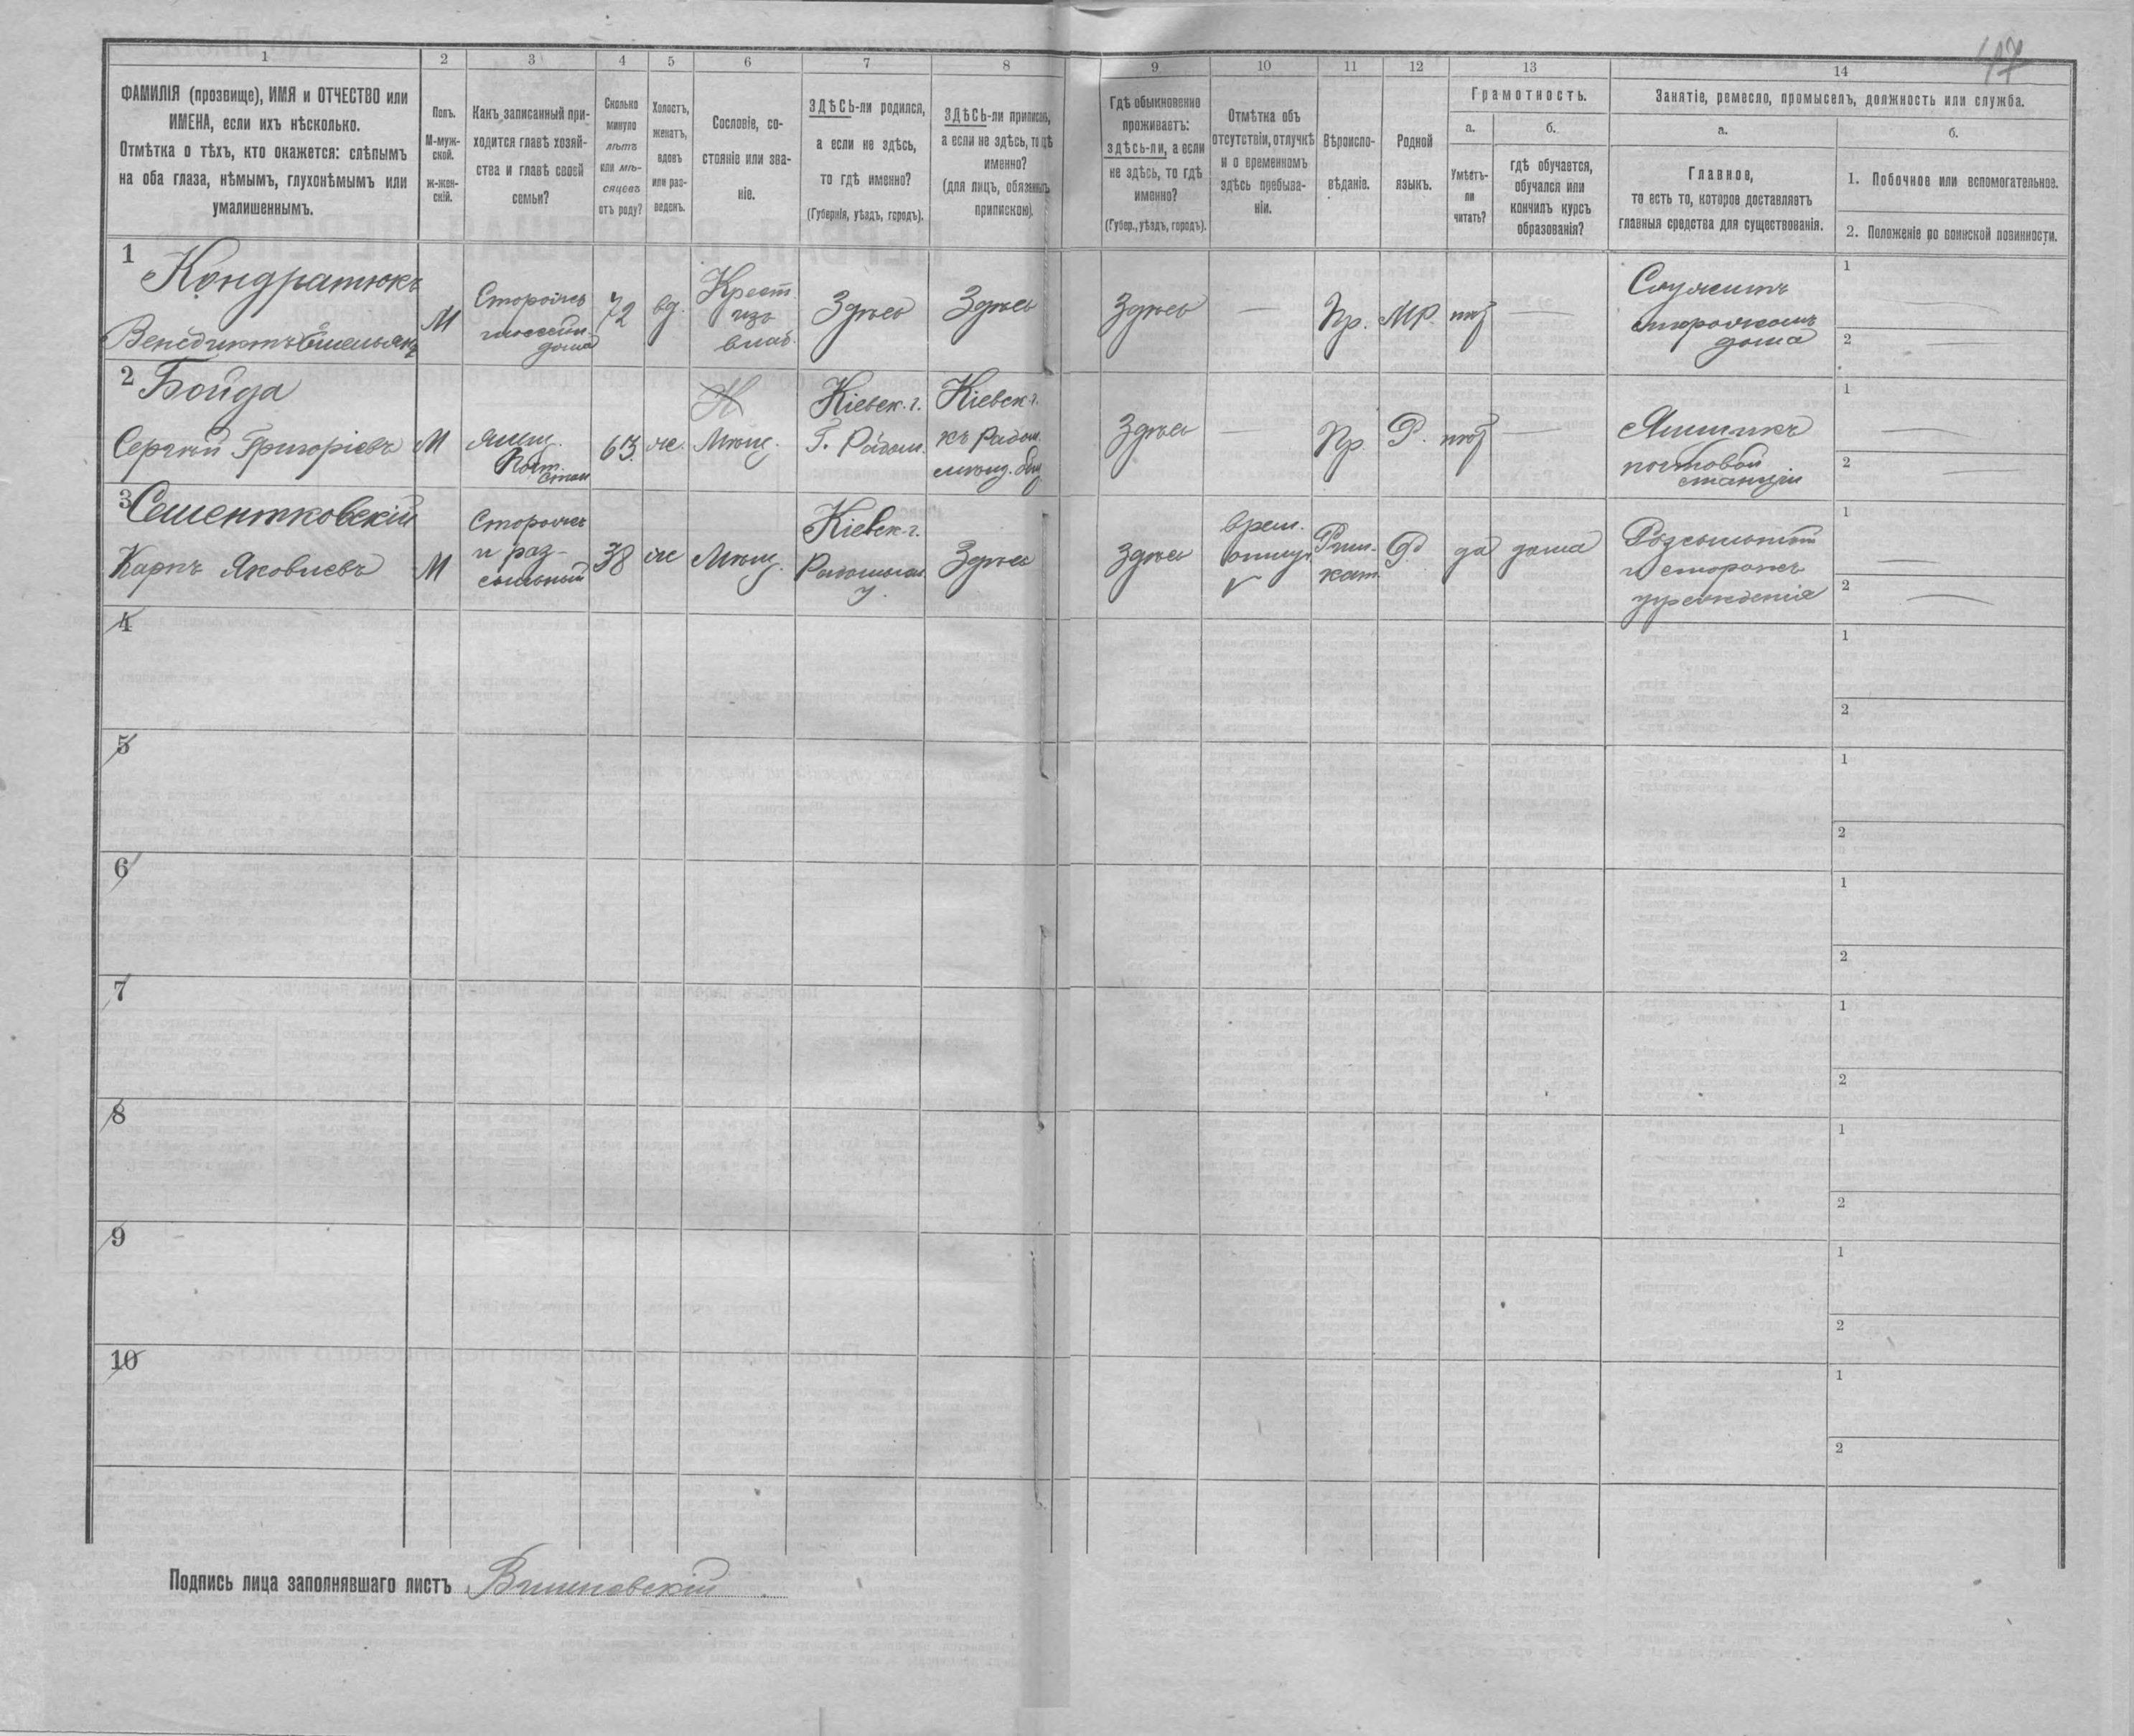 47
1 2 3 4 5 6 7 8 9 10 11 12 13 14
ФАМИЛІЯ (прозвище), ИМЯ и ОТЧЕСТВО или
ИМЕНА, если ихъ нѣсколько.
Отмѣтка о тѣхъ, кто окажется: слѣпымъ
на оба глаза, нѣмымъ, глухонѣмымъ или
умалишеннымъ.
Полъ.
М-муж-
ской.
ж-жен-
скій.
Какъ записанный при-
ходится главѣ хозяй-
ства и главѣ своей
семьи?
Сколько
минуло
лѣтъ
или мѣ-
сяцевъ
отъ роду?
Холостъ,
женатъ,
вдовъ
или раз-
веденъ.
Сословіе, со-
стояніе или зва-
ніе.
ЗДѢСЬ-ли родился,
а если не здѣсь,
то гдѣ именно?
(Губернія, уѣздъ, городъ).
ЗДѢСЬ-ли приписанъ,
а если не здѣсь, то гдѣ
именно?
(для лицъ, обязанныхъ
припискою).
Гдѣ обыкновенно
проживаетъ:
здѣсь-ли, а если
не здѣсь, то гдѣ
именно?
(Губер., уѣздъ, городъ).
Отмѣтка объ
отсутствіи, отлучкѣ
и о временномъ
здѣсь пребыва-
ніи.
Вѣроиспо-
вѣданіе.
Родной
языкъ.
Грамотность.
а.
Умѣетъ-
ли
читать?
б.
гдѣ обучается,
обучался или
кончилъ курсъ
образованія?
Занятіе, ремесло, промыселъ, должность или служба.
а.
Главное,
то есть то, которое доставляетъ
главныя средства для существованія.
б.
1. Побочное или вспомогательное.
2. Положеніе по воинской повинности.
1
Кондратюкъ
Венедиктъ Емельянъ
М
Сторожъ
дома
72
вд.
Крест
изъ
влад.
Здѣсь
Здѣсь
Здѣсь
—
Пр.
МР.
нѣт
—
Служитъ
сторожемъ
дома
1 —
2 —
2
Бойда
Сергѣй Григоріевъ
М
Ямщ.
Почт.
стан
63
же.
Мѣщ.
Кіевск. г.
Г. Радом.
Кіевск. г.
къ Радом.
мѣщ. общ
Здѣсь
—
Пр.
Р.
нѣт
—
Ямщикъ
почтовой
станціи
1
2 —
3
Сементковскій
Карпъ Яковлевъ
М
Сторожъ
и раз-
сыльный
38
же
Мѣщ.
Кіевск. г.
Радомысл.
у.
Здѣсь
Здѣсь
врем.
отлуч.
Рим.
кат.
Р.
да
дома
Разсыльный
и сторожъ
учрежденія
1 —
2 —
4
1
2
5
1
2
6
1
2
7
1
2
8
1
2
9
1
2
10
1
2
Подпись лица заполнявшаго листъ